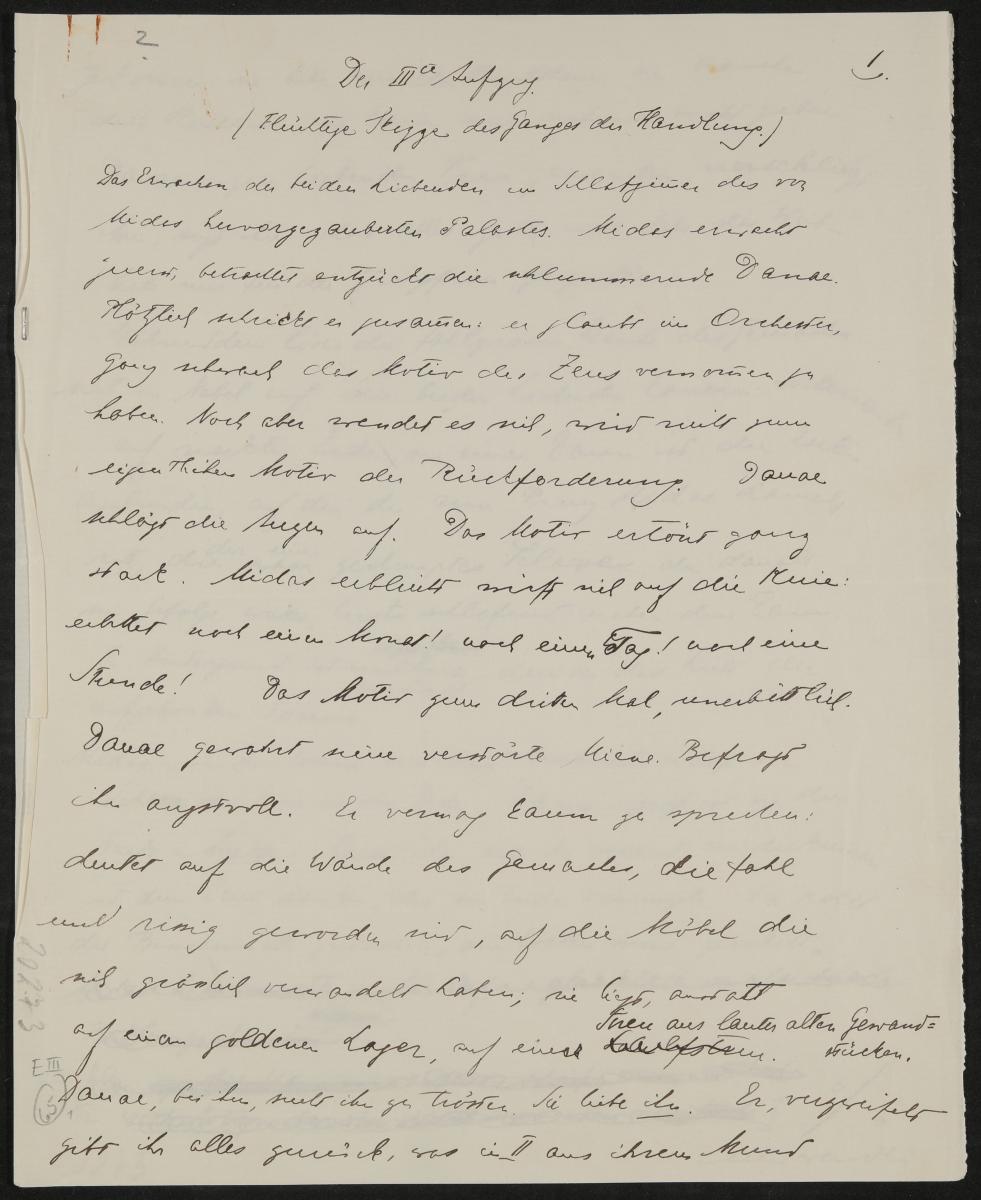 2
1.
Der III^te Aufzug.
(Flüchtige Skizze des Ganges der Handlung.)
Das Erwachen der beiden Liebenden im Schlafzimmer des von
Midas hervorgezauberten Palastes. Midas erwacht
zuerst, betrachtet entzückt die schlummernde Danae.
Plötzlich schrickt er zusammen: er glaubt im Orchester,
ganz schwach das Motiv des Zeus vernommen zu
haben. Noch aber wendet es sich, wird nicht zum
eigentlichen Motiv der Rückforderung. Danae
schlägt die Augen auf. Das Motiv ertönt ganz
stark. Midas erbleicht wirft sich auf die Knie:
erbittet noch einen Monat! noch einen Tag! noch eine
Stunde! Das Motiv zum dritten Mal, unerbittlich.
Danae gewahrt seine verstörte Miene. Befragt
ihn angstvoll. Er vermag kaum zu sprechen:
deutet auf die Wände des Gemaches, die fahl
und rissig geworden sind, auf die Möbel die
sich grässlich verwandelt haben; sie liegt, anstatt
auf einem goldenen Lager, auf einer
Streu aus lauter alten Gewand=
stücken.
Danae, bei ihm, sucht ihn zu trösten. Sie liebe ihn. Er, verzweifelt
gibt ihr alles zurück, was in II aus ihrem Mund
E III